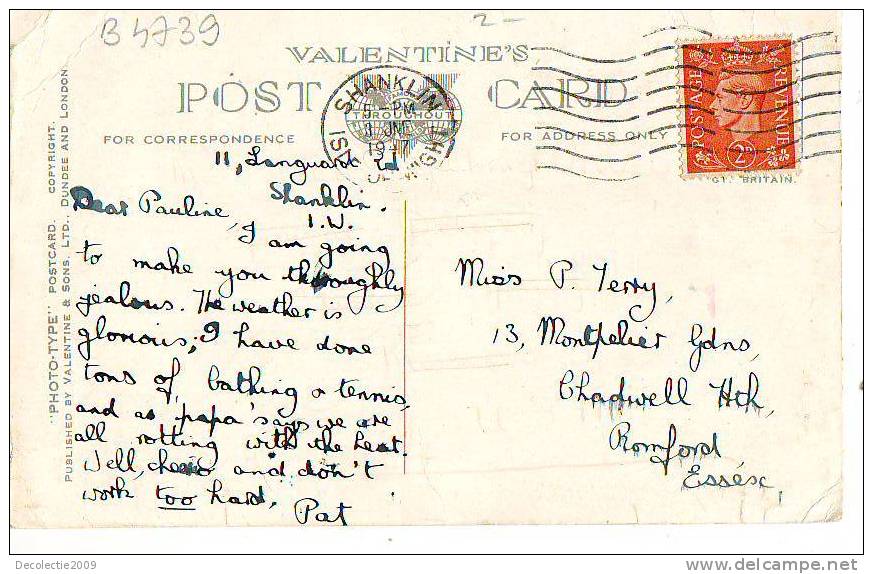 B 4739
2-
VALENTINE'S
POST CARD
SHANKLIN
5 - PM
JNE
194
THROUGHOUT
FOR CORRESPONDENCE
FOR ADDRESS ONLY
POSTAGE
REVENUE
2D
GT. BRITAIN.
"PHOTO-TYPE" POSTCARD. COPYRIGHT.
PUBLISHED BY VALENTINE & SONS, LTD., DUNDEE AND LONDON
11, Languard Rd
Shanklin.
I.W.
Dear Pauline,
I am going
to make you thoroughly
jealous. The weather is
glorious; I have done
tons of bathing & tennis,
and as 'papa' says we are
all rotting with the heat.
Well, cheerio and don't
work too hard.
Pat
Miss P. Terry,
13, Montpelier Gdns,
Chadwell Hth,
Romford
Essex,
Decolectie2009
delcampe.net